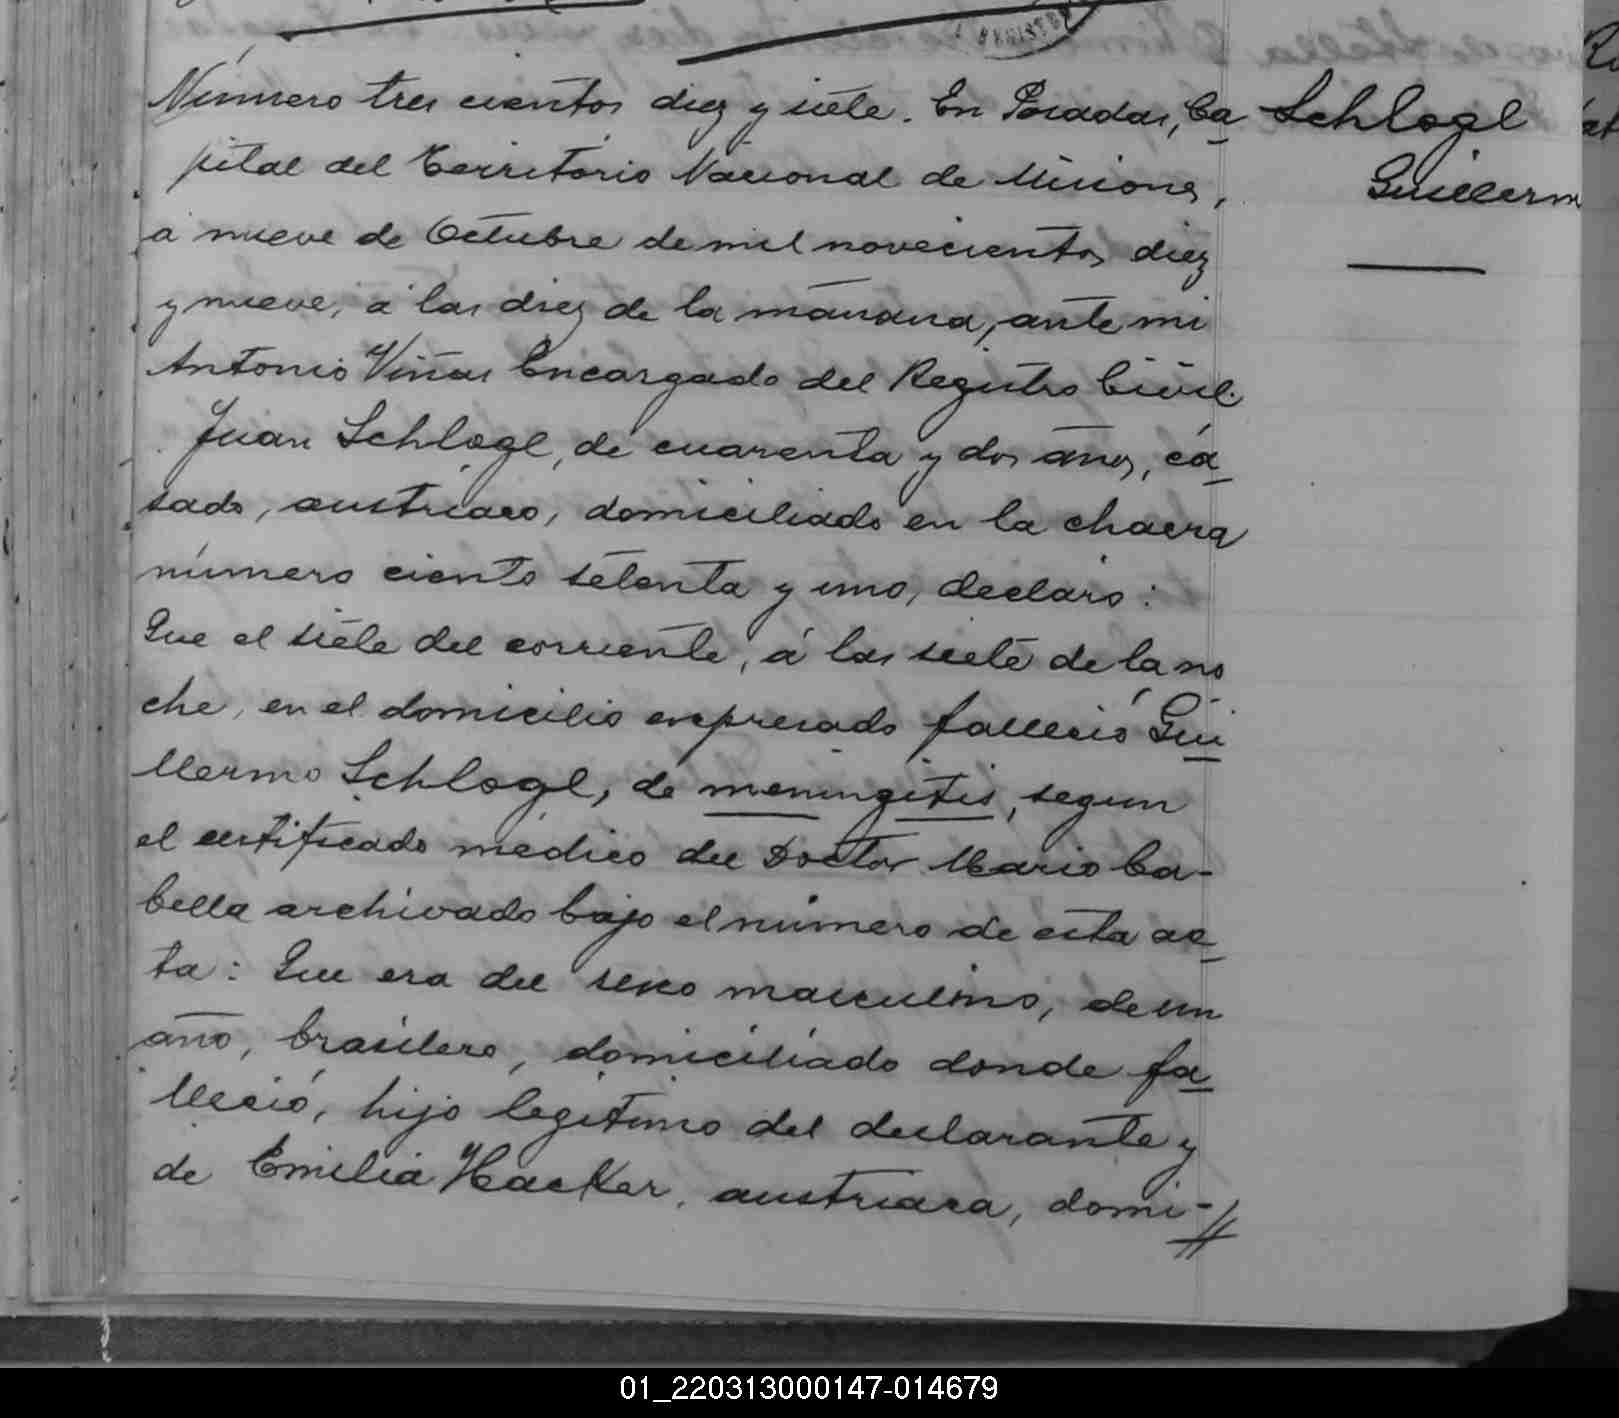 REGISTRO
Número tres cientos diez y siete. En Posadas, Ca
pital del Territorio Nacional de Misiones,
a nueve de Octubre de mil novecientos diez
y nueve, á las diez de la mañana, ante mi
Antonio Viñas Encargado del Registro Civil.
Juan Schlogl, de cuarenta y dos años, ca
sado, austriaco, domiciliado en la chacra
número ciento setenta y uno, declaró:
Que el siete del corriente, á las siete de la no
che, en el domicilio expresado falleció Gui
llermo Schlogl, de meningitis, segun
el certificado médico del Doctor Mario Ca-
bella archivado bajo el número de esta ac
ta: Que era del sexo masculino, de un
año, brasilero, domiciliado donde fa
lleció, hijo legítimo del declarante y
de Emilia Hacker, austriaca, domi-//
Schlogl
Guillerm
01_220313000147-014679